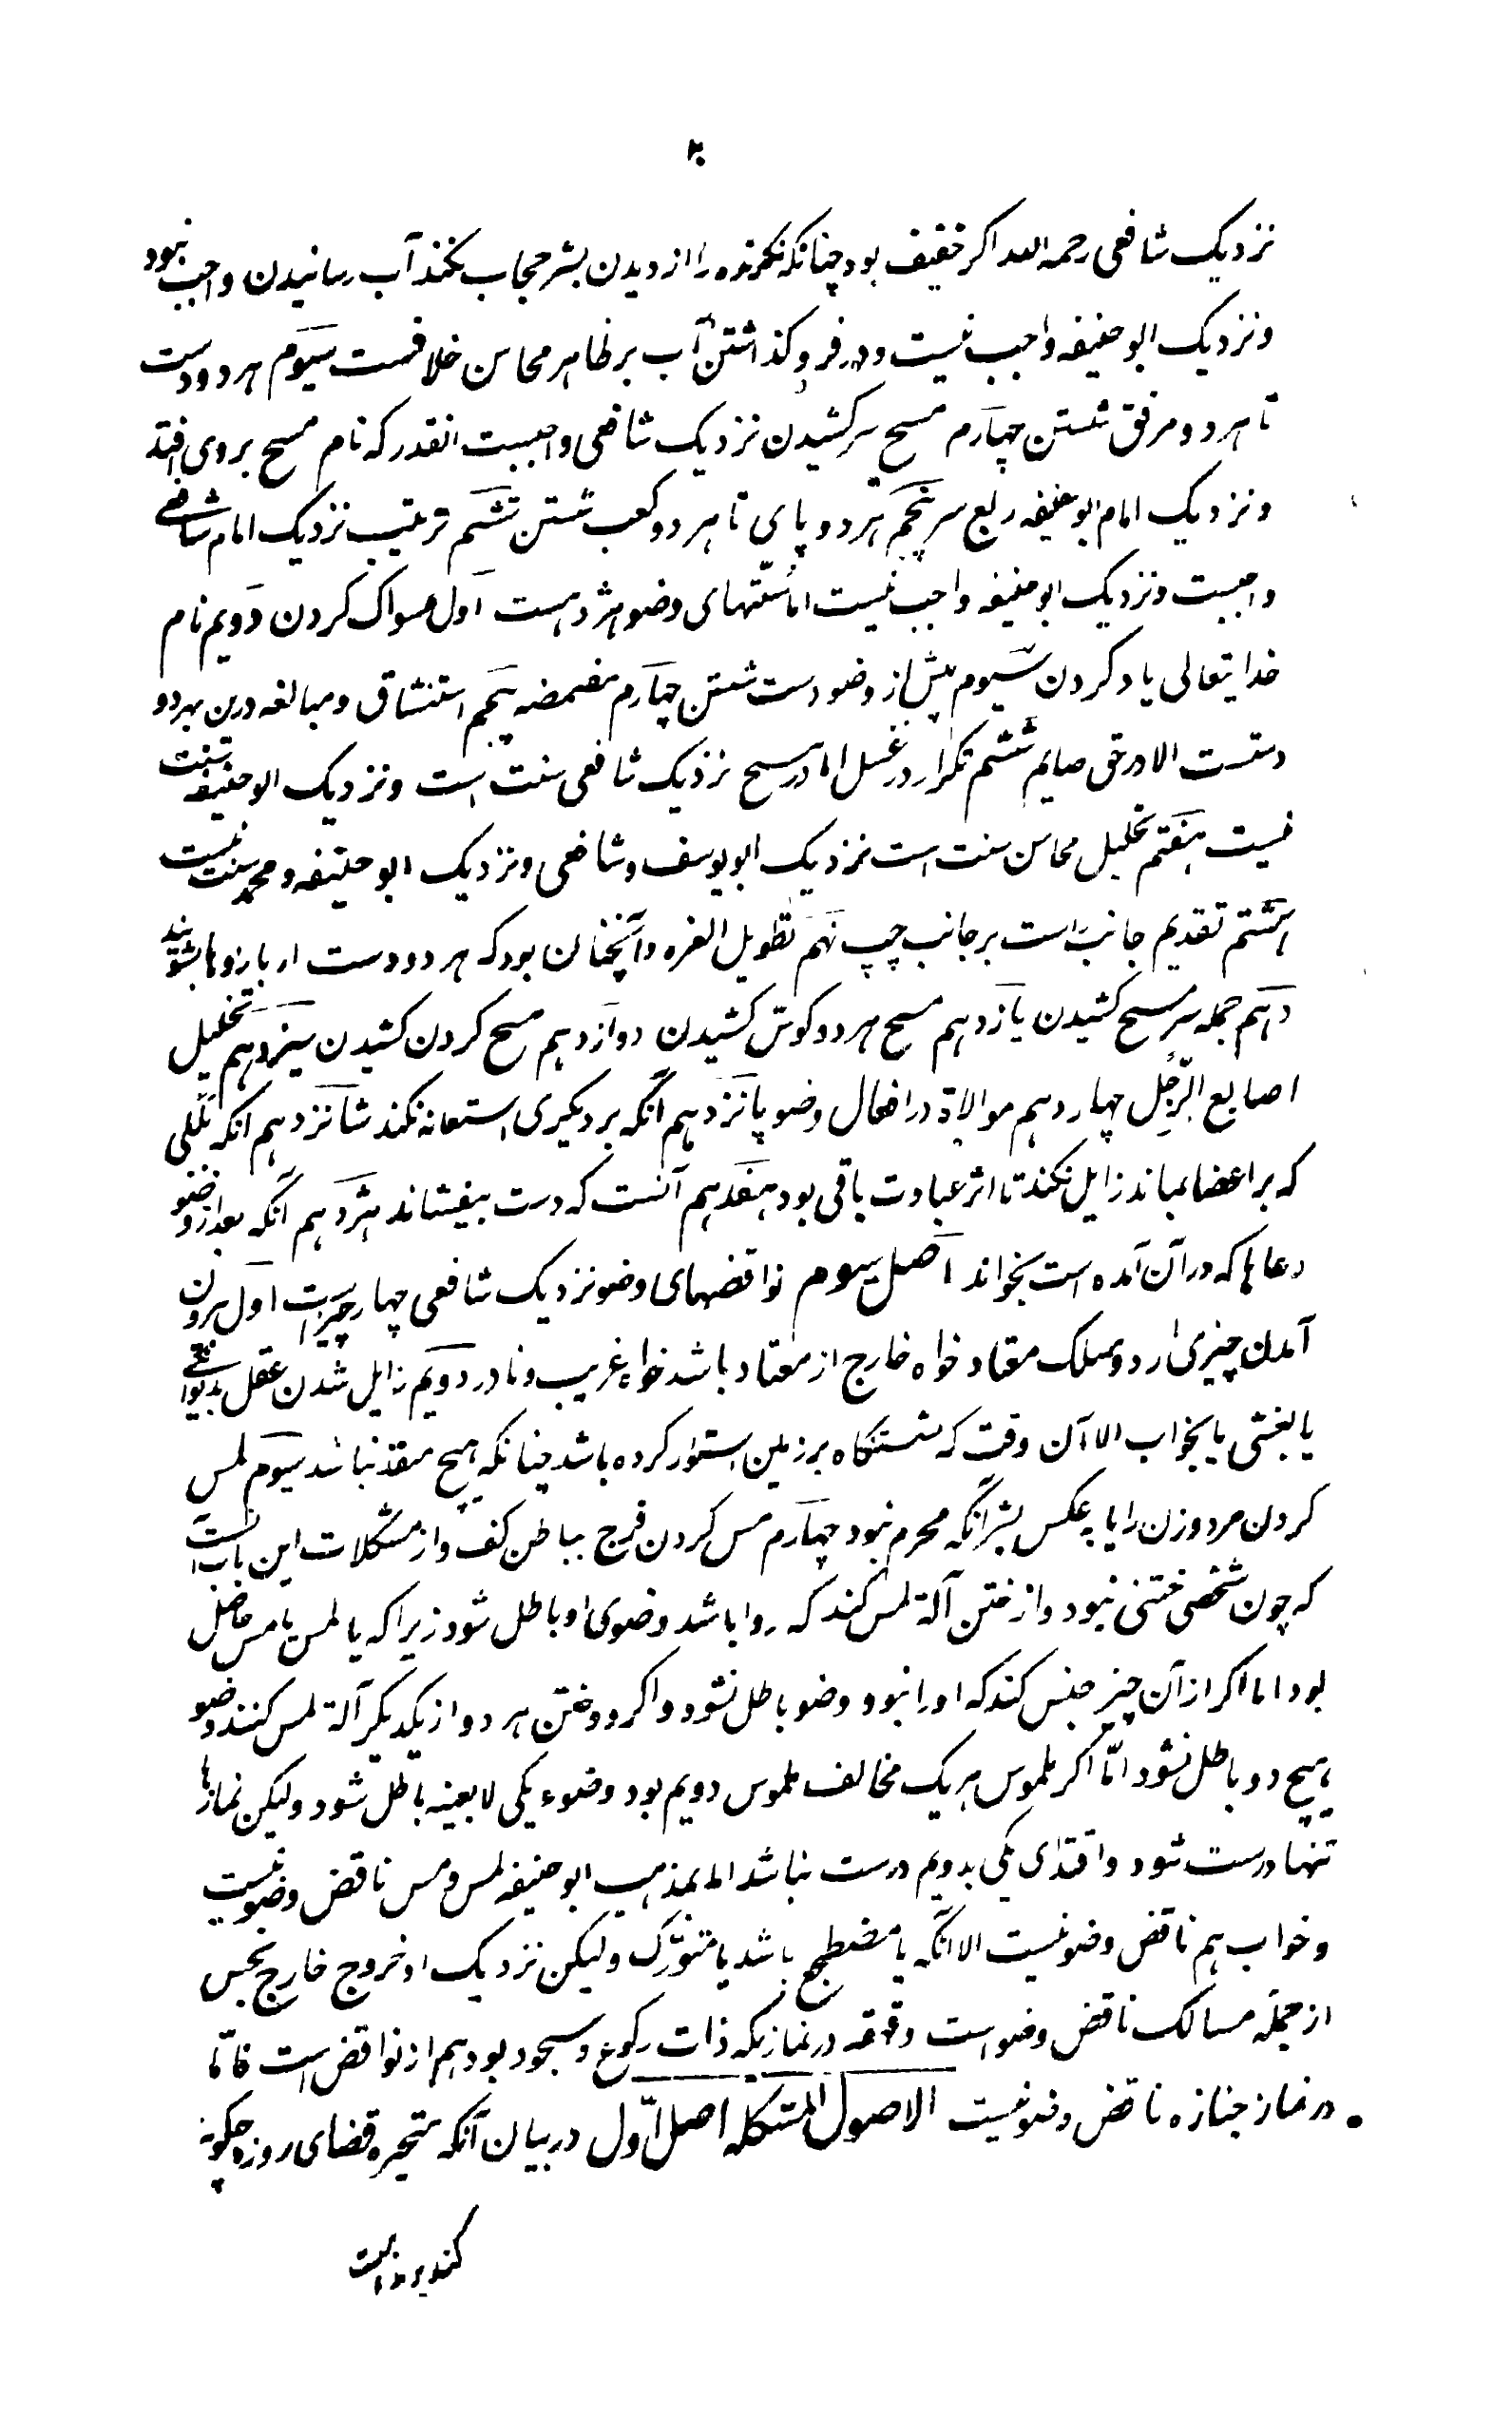 نزدیک شافعی رحمه الله اکر خفیف بود چنانکه نکرنده را از دیدن بشر حجاب نکند آب رسانیدن واجب نبود
ونزدیک ابو حنیفه واجب نیست ودر فرو کذاشتن آب بر ظاهر محاسن خلافست سیوم هر دو دست
تا هر دو مرفق شستن چهارم مسح سر کشیدن نزدیک شافعی واجبست انقدر که نام مسح بروی افتد
ونزدیک امام ابو حنیفه ربع سر پنجم هر دو پای تا هر دو کعب شستن ششم ترتیب نزدیک امام شافعی
واجبست ونزدیک ابو حنیفه واجب نیست اما سنتهای وضو هژدهست اول مسواک کردن دویم نام
خدایتعالی یاد کردن سیوم پیش از وضو دست شستن چهارم مضمضه پنجم استنشاق ومبالغه درین هردو
سنت الا در حق صایم ششم تکرار در غسل اما در مسح نزدیک شافعی سنت است ونزدیک ابو حنیفه سنت
نیست هفتم تخلیل محاسن سنت است نزدیک ابو یوسف وشافعی ونزدیک ابو حنیفه ومحمد سنت نیست
هشتم تقدیم جانب راست بر جانب چپ نهم تطویل الغره وآنچنان بود که هر دو دست از بازوها بشویند
دهم جمله سر مسح کشیدن یازدهم مسح هر دو کوش کشیدن دوازدهم مسح کردن کشیدن سیزدهم تخلیل
اصابع الرجل چهاردهم موالاة در افعال وضو پانزدهم آنکه بر دیکری استعانه نکند شانزدهم انکه
که بر اعضا بماند زایل نکند تا اثر عبادت باقی بود هفدهم آنست که دست بیفشاند هژدهم آنکه بعد از وضو
دعاها که در آن آمده است بخواند اصل سیوم نواقضهای وضو نزدیک شافعی چهار چیزاست اول بیرون
آمدن چیزی از دو مسلک معتاد خواه خارج از معتاد باشد خواه غریب ونادر دویم زایل شدن عقل
یا بغشی یا بخواب الا آن وقت که نشستنکاه بر زمین استوار کرده باشد چنانکه هیچ منفذ نباشد سیوم لمس
کردن مرد وزن را یا به عکس بشرط آنکه محرم نبود چهارم مس کردن فرج بباطن کف واز مشکلات این باب آنست
که چون شخصی خنثی نبود واز خنثی آلة لمس کند که روا باشد وضوی او باطل شود زیرا که یا لمس یا مس حاصل
بود اما اکر از آن چیز جنس کند که او را نبود وضو باطل نشود واکر دو خنثی هر دو از یکدیکر آلة لمس کنند وضو
هیچ دو باطل نشود امّا اکر ملموس هر یک مخالف ملموس دویم بود وضوء یکی لا بعینه باطل شود ولیکن نمازها
تنها درست شود واقتدای یکی بدویم درست نباشد اما بمذهب ابو حنیفه لمس ومس ناقض وضو نیست
وخواب هم ناقض وضو نیست الا آنکه یا مضطجع باشد یا متورّک ولیکن نزدیک او خروج خارج نجس
از جمله مسالک ناقض وضو است وقهقهه در نمازیکه ذات رکوع وسجود بود هم از نواقض است فامّا
در نماز جنازه ناقض وضو نیست الاصول المشکله اصل اوّل در بیان آنکه متحیره قضای روزه چکونه
کند